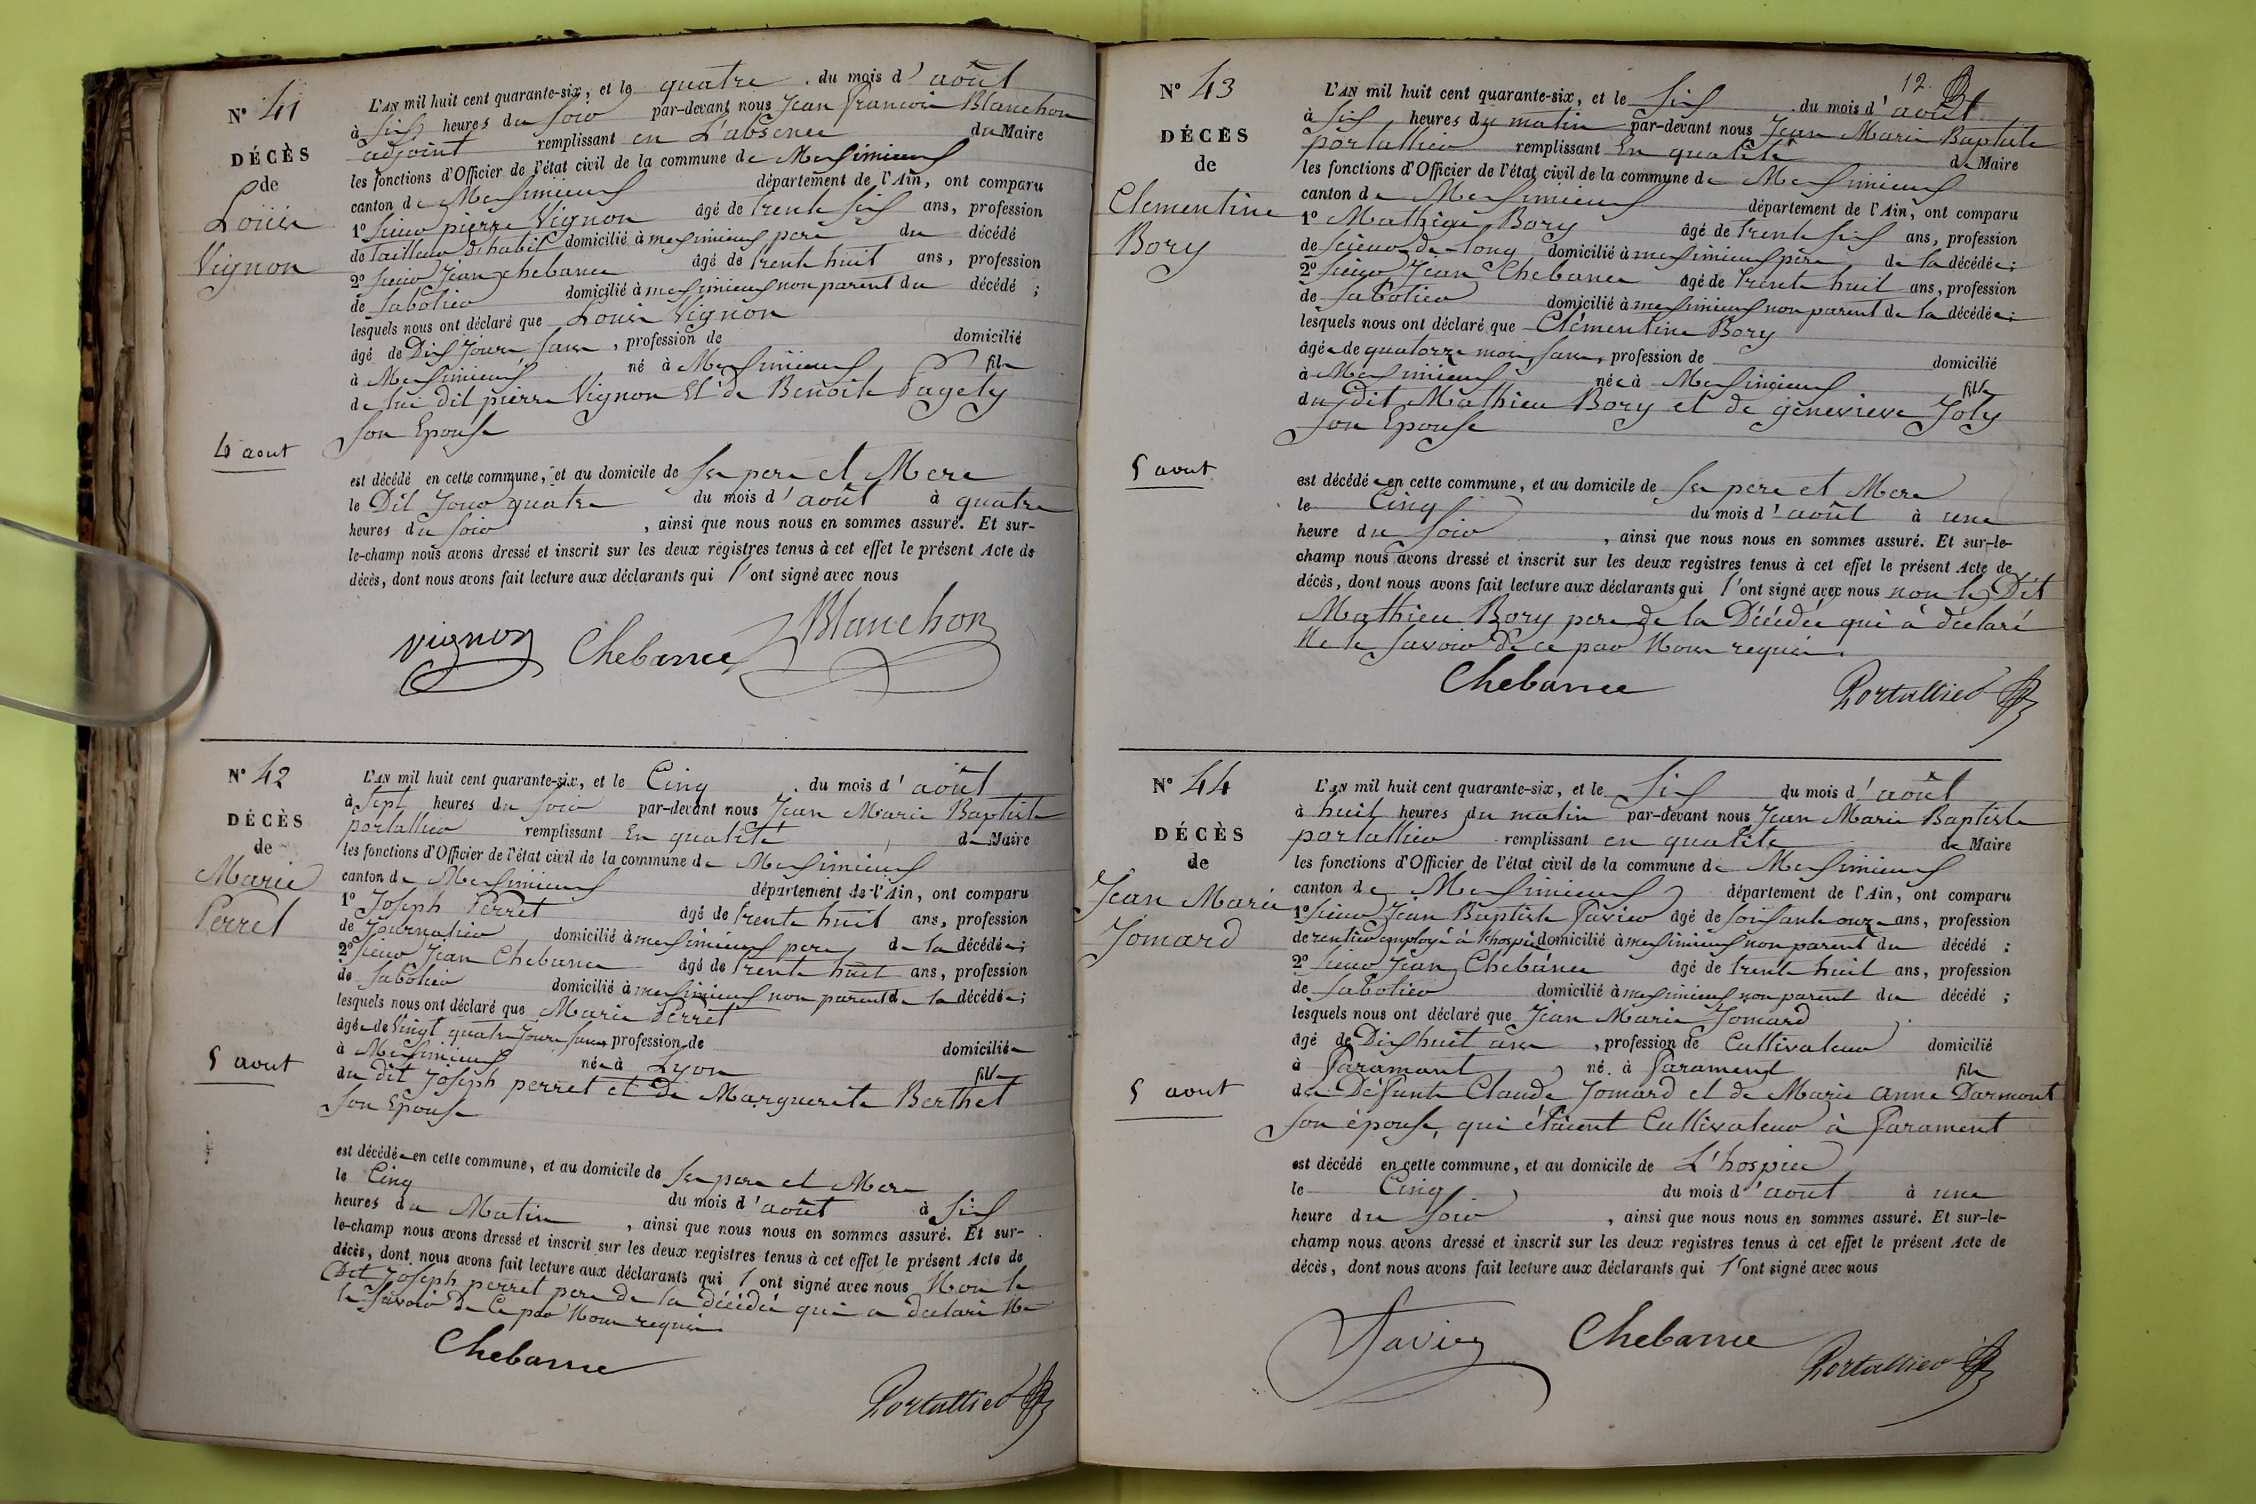 N° 41
DÉCÈS
de
Louis
Vignon
4 aout
L'AN mil huit cent quarante-six, et le quatre du mois d'août
à six heures du soir par-devant nous Jean francois Blanchon
adjoint remplissant en L'absence du Maire
les fonctions d'Officier de l'état civil de la commune de Meximieux
canton de Meximieux département de l'Ain, ont comparu
1° sieur pierre Vignon âgé de trente six ans, profession
de tailleur d'habit domicilié à meximieux pere du décédé
2° sieur Jean chebance âgé de trente huit ans, profession
de sabotier domicilié à meximieux non parent du décédé ;
lesquels nous ont déclaré que Louis Vignon
âgé de Dix Jours sans, profession de domicilié
à Meximieux né à Meximieux fils
de lui dit pierre Vignon Et de Benoite Pagely
son Epouse
est décédé en cette commune, et au domicile de ses pere et Mere
le Dit Jour quatre du mois d'août à quatre
heures du soir, ainsi que nous nous en sommes assuré. Et sur-
le-champ nous avons dressé et inscrit sur les deux registres tenus à cet effet le présent Acte de
décès, dont nous avons fait lecture aux déclarants qui l'ont signé avec nous
Vignon Chebance Blanchon
N° 42
DÉCÈS
de
Marie
Perret
5 aout
L'AN mil huit cent quarante-six, et le Cinq du mois d'août
à sept heures du soir par-devant nous Jean Marie Baptiste
portallier remplissant En qualité de Maire
les fonctions d'Officier de l'état civil de la commune de Meximieux
canton de Meximieux département de l'Ain, ont comparu
1° Joseph Perret âgé de trente huit ans, profession
de Journalier domicilié à meximieux pere de la décédée ;
2° sieur Jean Chebance âgé de trente huit ans, profession
de sabotier domicilié à meximieux non parent de la décédée ;
lesquels nous ont déclaré que Marie Perret
âgée de Vingt quatre Jours sans profession de domiciliée
à Meximieux née à Lyon fille
du dit Joseph perret et de Marguerite Berthet
son Epouse
est décédée en cette commune, et au domicile de ses pere et Mere
le Cinq du mois d'août à six
heures du Matin, ainsi que nous nous en sommes assuré. Et sur-
le-champ nous avons dressé et inscrit sur les deux registres tenus à cet effet le présent Acte de
décès, dont nous avons fait lecture aux déclarants qui l'ont signé avec nous Non le
Dit Joseph perret pere de la décédée qui a déclaré Ne
le savoir de ce par Nous requis
Chebance
Portallier
12
N° 43
DÉCÈS
de
Clementine
Bory
5 aout
L'AN mil huit cent quarante-six, et le six du mois d'août
à six heures du matin par-devant nous Jean Marie Baptiste
portallier remplissant En qualité de Maire
les fonctions d'Officier de l'état civil de la commune de Meximieux
canton de Meximieux département de l'Ain, ont comparu
1° Mathieu Bory âgé de trente six ans, profession
de scieur de long domicilié à meximieux père de la décédée ;
2° sieur Jean Chebance âgé de trente huit ans, profession
de sabotier domicilié à meximieux non parent de la décédée ;
lesquels nous ont déclaré que Clémentine Bory
âgée de quatorze mois, sans, profession de domicilié
à Meximieux née à Meximieux fille
du dit Mathieu Bory et de genevieve Joly
son Epouse
est décédée en cette commune, et au domicile de ses pere et Mere
le Cinq du mois d'août à une
heure du soir, ainsi que nous nous en sommes assuré. Et sur-le-
champ nous avons dressé et inscrit sur les deux registres tenus à cet effet le présent Acte de
décès, dont nous avons fait lecture aux déclarants qui l'ont signé avec nous non le Dit
Mathieu Bory pere de la Décédée qui à déclaré
Ne le savoir de ce par Nous requis.
Chebance Portallier
N° 44
DÉCÈS
de
Jean Marie
Jomard
5 aout
L'AN mil huit cent quarante-six, et le six du mois d'août
à huit heures du matin par-devant nous Jean Marie Baptiste
portallier remplissant en qualité de Maire
les fonctions d'Officier de l'état civil de la commune de Meximieux
canton de Meximieux département de l'Ain, ont comparu
1° sieur Jean Baptiste Savier âgé de soixante onze ans, profession
de rentier employé à l'hospice domicilié à meximieux non parent du décédé ;
2° sieur Jean Chebance âgé de trente huit ans, profession
de sabotier domicilié à meximieux non parent du décédé ;
lesquels nous ont déclaré que Jean Marie Jomard
âgé de Dix huit ans, profession de Cultivateur domicilié
à faramant né à farament fils
de Défunts Claude Jomard et de Marie Anne Darmont
son épouse, qui étaient Cultivateur à farament
est décédé en cette commune, et au domicile de L'hospice
le Cinq du mois d'août à une
heure du soir, ainsi que nous nous en sommes assuré. Et sur-le-
champ nous avons dressé et inscrit sur les deux registres tenus à cet effet le présent Acte de
décès, dont nous avons fait lecture aux déclarants qui l'ont signé avec nous
Savier Chebance Portallier